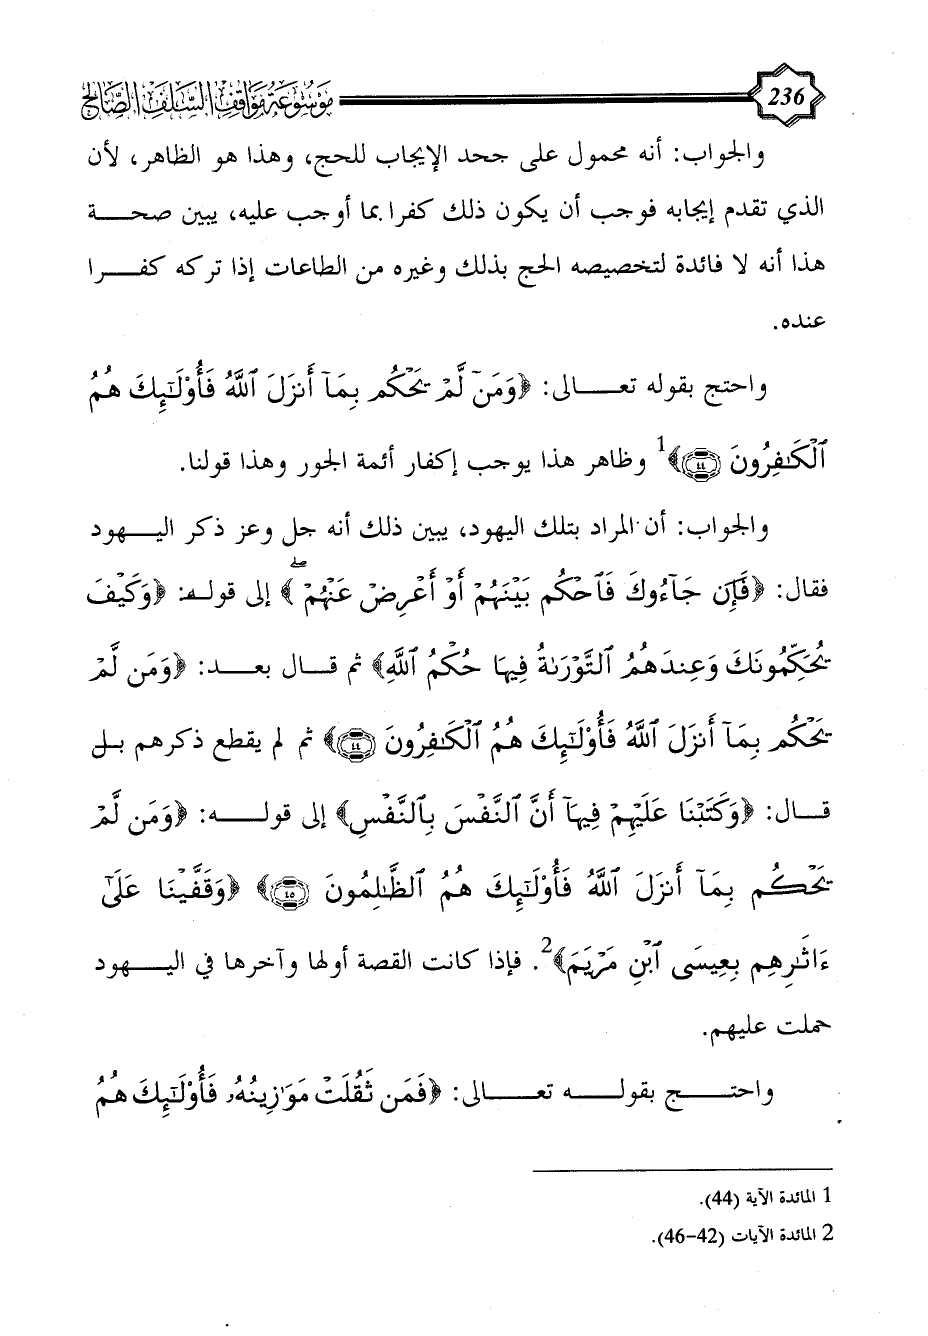 236 موسوعة مواقف السلف الصالح
والجواب: أنه محمول على جحد الإيجاب للحج، وهذا هو الظاهر، لأن
الذي تقدم إيجابه فوجب أن يكون ذلك كفرا بما أوجب عليه، يبين صحة
هذا أنه لا فائدة لتخصيصه الحج بذلك وغيره من الطاعات إذا تركه كفرا
عنده.
واحتج بقوله تعالى: ﴿وَمَن لَّمْ يَحْكُم بِمَآ أَنزَلَ ٱللَّهُ فَأُوْلَٰٓئِكَ هُمُ
ٱلْكَٰفِرُونَ ٤٤﴾1 وظاهر هذا يوجب إكفار أئمة الجور وهذا قولنا.
والجواب: أن المراد بتلك اليهود، يبين ذلك أنه جل وعز ذكر اليهود
فقال: ﴿فَإِن جَآءُوكَ فَٱحْكُم بَيْنَهُمْ أَوْ أَعْرِضْ عَنْهُمْ ۖ﴾ إلى قوله: ﴿وَكَيْفَ
يُحَكِّمُونَكَ وَعِندَهُمُ ٱلتَّوْرَىٰةُ فِيهَا حُكْمُ ٱللَّهِ﴾ ثم قال بعد: ﴿وَمَن لَّمْ
يَحْكُم بِمَآ أَنزَلَ ٱللَّهُ فَأُوْلَٰٓئِكَ هُمُ ٱلْكَٰفِرُونَ ٤٤﴾ ثم لم يقطع ذكرهم بل
قال: ﴿وَكَتَبْنَا عَلَيْهِمْ فِيهَآ أَنَّ ٱلنَّفْسَ بِٱلنَّفْسِ﴾ إلى قوله: ﴿وَمَن لَّمْ
يَحْكُم بِمَآ أَنزَلَ ٱللَّهُ فَأُوْلَٰٓئِكَ هُمُ ٱلظَّٰلِمُونَ ٤٥﴾ ﴿وَقَفَّيْنَا عَلَىٰٓ
ءَاثَٰرِهِم بِعِيسَى ٱبْنِ مَرْيَمَ﴾2. فإذا كانت القصة أولها وآخرها في اليهود
حملت عليهم.
واحتج بقوله تعالى: ﴿فَمَن ثَقُلَتْ مَوَٰزِينُهُۥ فَأُوْلَٰٓئِكَ هُمُ
1 المائدة الآية (44).
2 المائدة الآيات (42-46).